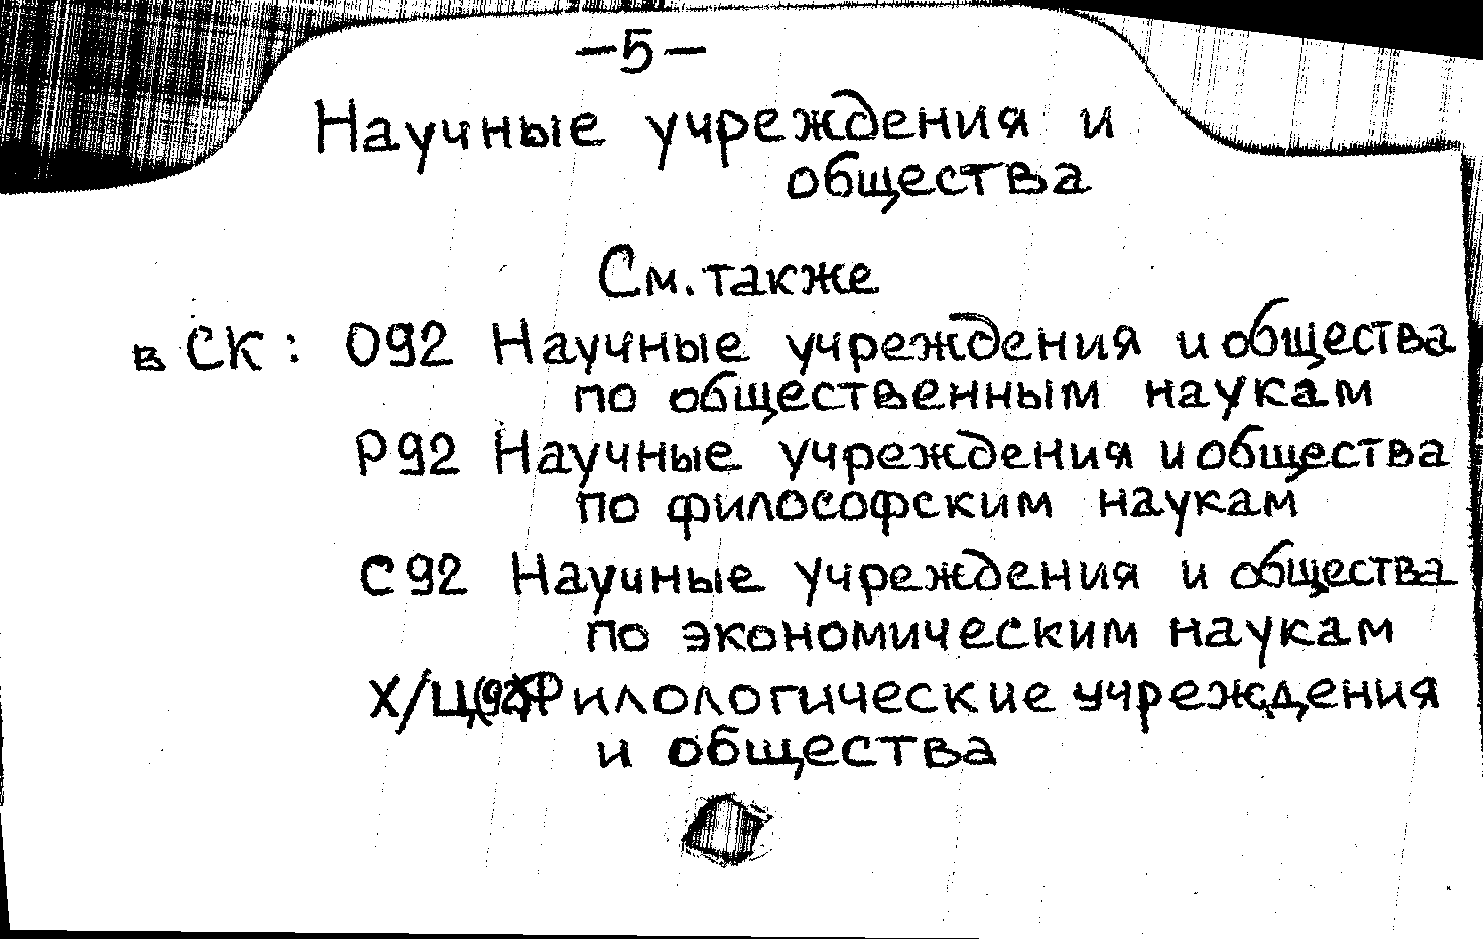 –5–
Научные учреждения и
общества
См. также
в СК: О92 Научные учреждения и общества
по общественным наукам
Р92 Научные учреждения и общества
по философским наукам
С92 Научные учреждения и общества
по экономическим наукам
Х/Ц(92) Филологические учреждения
и общества